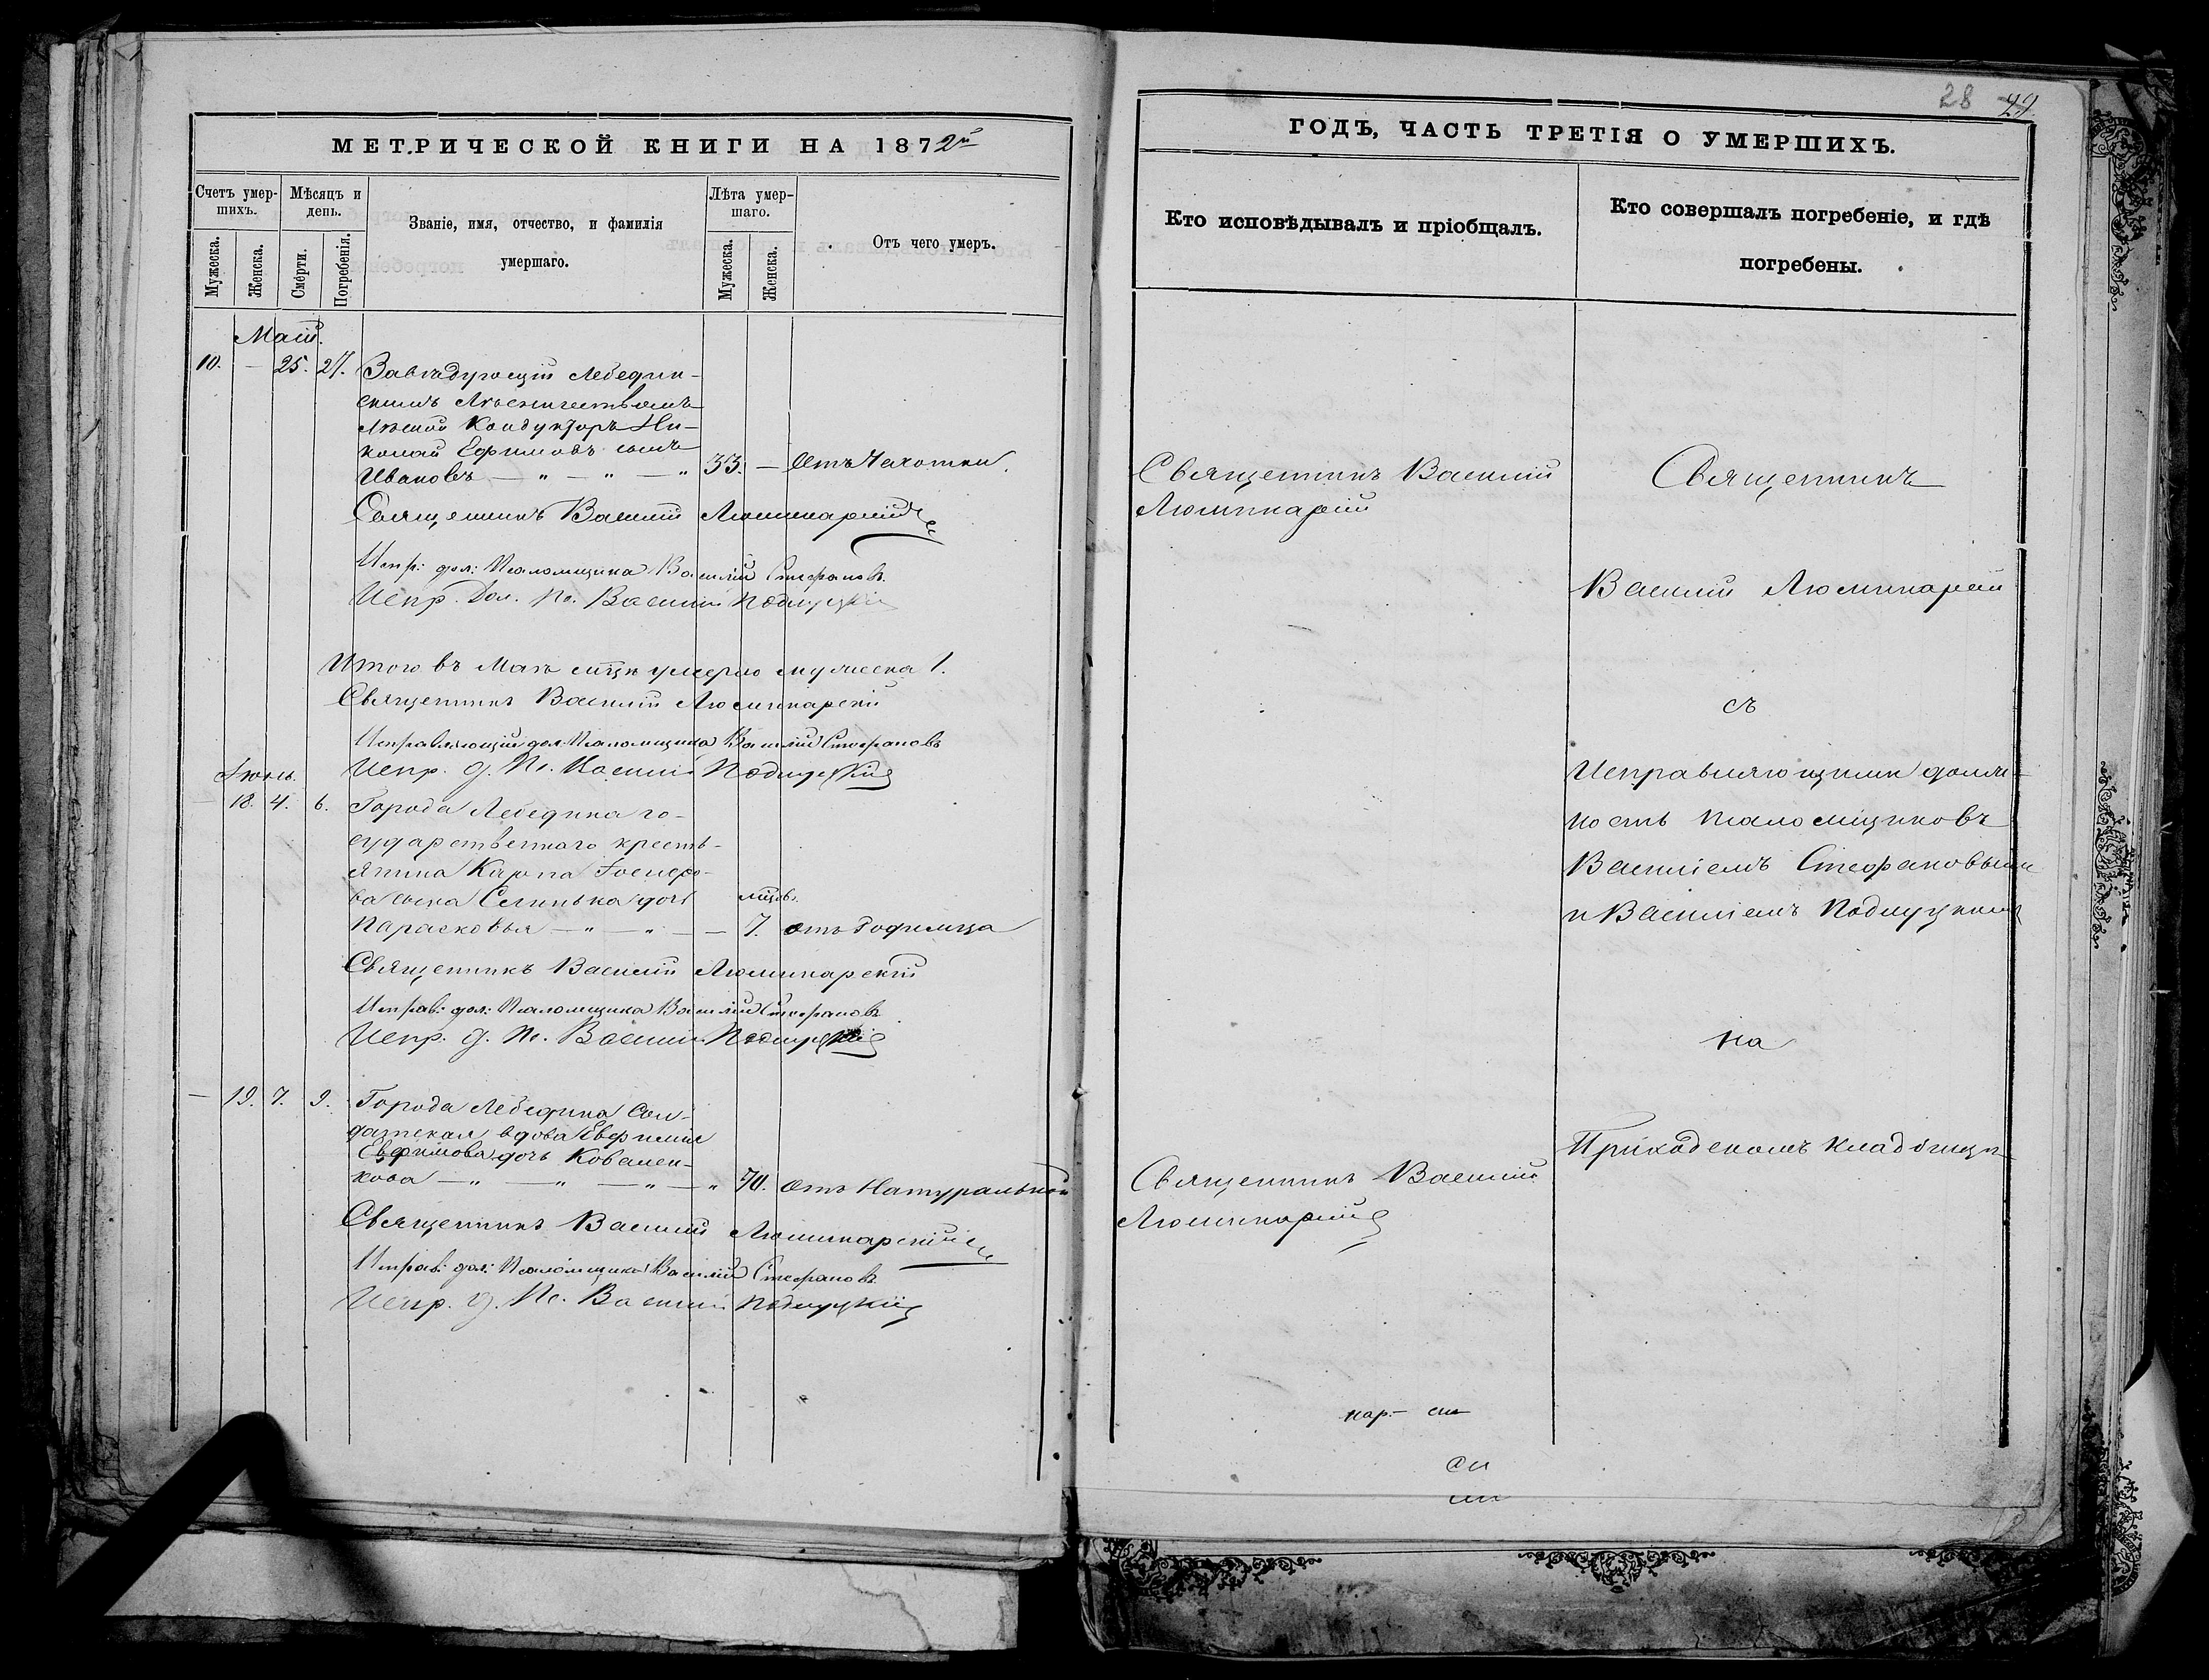 МЕТРИЧЕСКОЙ КНИГИ НА 1872й
Счетъ умер-
шихъ.
Мѣсяцъ и
день.
Званіе, имя, отчество, и фамилія
умершаго.
Лѣта умер-
шаго.
Отъ чего умеръ.
Мужеска.
Женска.
Смерти.
Погребенія.
Мужеска.
Женска.
Маій.
10. — 25. 27. Завѣдующій Лебедин-
скимъ Лѣсничествомъ
Лѣсной Кондукторъ Ни-
колай Ефимовъ сынъ
Ивановъ — „ — „ — „ 33. — Отъ Чахотки.
Священникъ Василій Люминарскій
Испр: дол: Псаломщика Василій Стефановъ
Испр. Дол. Пс. Василій Подлуцкій
Итого въ Маѣ мцѣ умерло мужеска 1.
Священникъ Василій Люминарскій
Исправляющій дол. Псаломщика Василій Стефановъ
Испр. д. Пс. Василій Подлуцкій
Іюнь.
— 18. 4. 6. Города Лебедина го-
сударственнаго кресть-
янина Карпа Іосифо-
ва сына дочь мцов.
Парасковья — „ — „ — — 7. отъ Родимца
Священникъ Василій Люминарскій
Исправ: дол: Псаломщика Василій Стефановъ
Испр. д. Пс. Василій Подлуцкій
— 19. 7. 9. Города Лебедина Сол-
датская вдова Евфимія
Евфимова дочь Ковален-
кова — „ — „ — „ — „ 70. отъ Натуральной
Священникъ Василій Люминарскій
Исправ: дол: Псаломщика Василій Стефановъ
Испр. д. Пс. Василій Подлуцкій
28 29.
ГОДЪ, ЧАСТЬ ТРЕТІЯ О УМЕРШИХЪ.
Кто исповѣдывалъ и пріобщалъ.
Кто совершалъ погребеніе, и гдѣ
погребены.
Священникъ Василій
Люминарскій
Священникъ Василій
Люминарскій
Священникъ
Василій Люминарскій
съ
Исправляющими долж-
ность псаломщиковъ
Василіемъ Стефановымъ
и Василіемъ Подлуцкимъ
на
Приходскомъ кладбищѣ